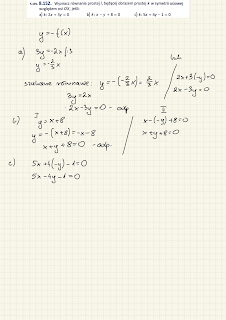 8.152. Wyznacz równanie prostej l, będącej obrazem prostej k w symetrii osiowej
względem osi OX, jeśli:
a) k: 2x + 3y = 0 b) k: x − y + 8 = 0 c) k: 5x + 4y − 1 = 0
y = -f(x)
a) 3y = -2x /:3
y = -2/3 x
szukane równanie: y = -(-2/3 x) = 2/3 x
3y = 2x
2x - 3y = 0 - odp.
lub
2x + 3(-y) = 0
2x - 3y = 0
b) I
y = x + 8
y = -(x+8) = -x - 8
x + y + 8 = 0 - odp.
II
x - (-y) + 8 = 0
x + y + 8 = 0
c) 5x + 4(-y) - 1 = 0
5x - 4y - 1 = 0